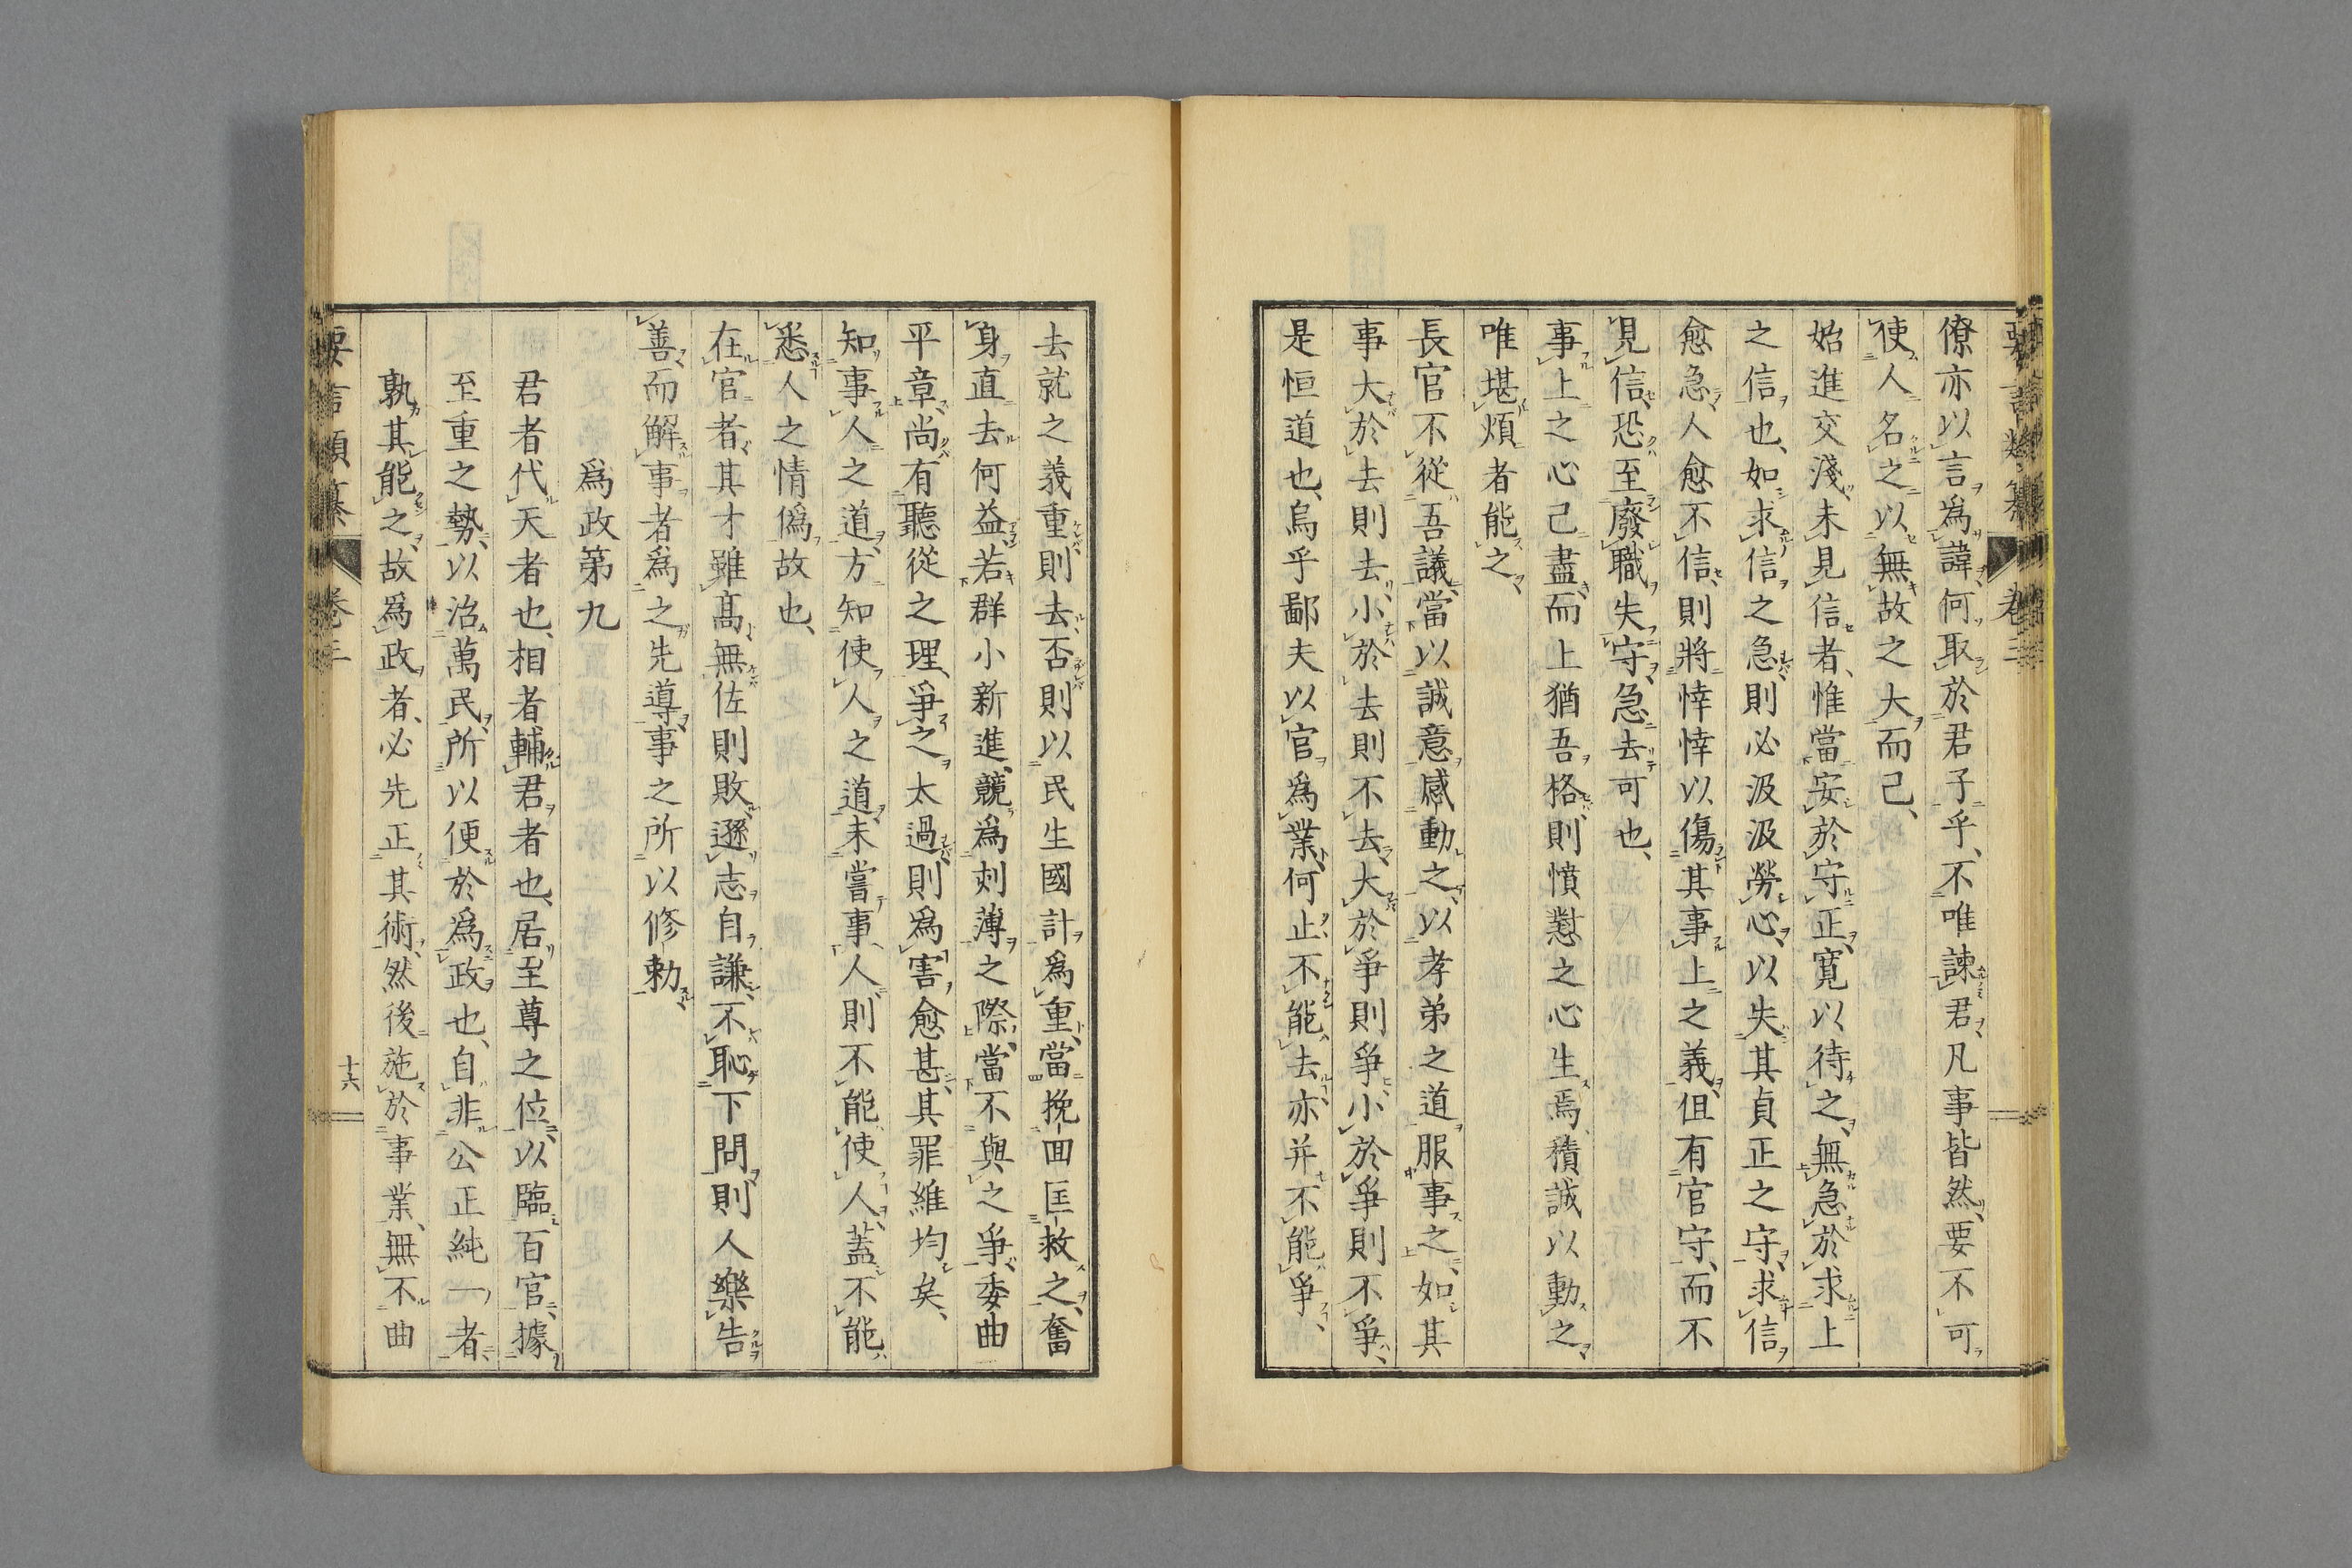 僚亦以言爲諱、何取於君子乎、不唯諫君、凡事皆然、要不可
使人名之以無故之大而已、
始進交淺未見信者、惟當安於守正、寬以待之、無急於求上
之信也、如求信之急、則必汲汲勞心、以失其貞正之守、求信
愈急人愈不信、則將悻悻以傷其事上之義、但有官守、而不
見信、恐至廢職失守、急去可也、
事上之心已盡、而上猶吾格、則憤懟之心生焉、積誠以動之、
唯堪煩者能之、
長官不從吾議、當以誠意感動之、以孝弟之道服事之、如其
事大於去則去、小於去則不去、大於爭則爭、小於爭則不爭、
是恒道也、烏乎鄙夫以官爲業、何止不能去、亦并不能爭、
去就之義重則去、否則以民生國計爲重、當挽回匡救之、奮
身直去何益、若群小新進、競爲刻薄之際、當不與之爭、委曲
平章、尚有聽從之理、爭之太過、則爲害愈甚、其罪維均矣、
知事人之道、方知使人之道、未嘗事人則不能使人、蓋不能
悉人之情僞故也、
在官者、其才雖高無佐則敗、遜志自謙、不恥下問、則人樂告
善、而解事者爲之先導、事之所以修勅、
爲政第九
君者代天者也、相者輔君者也、居至尊之位、以臨百官、據
至重之勢、以治萬民、所以便於爲政也、自非公正純一者、
孰其能之、故爲政者、必先正其術、然後施於事業、無不曲
要言類纂
卷三
十六